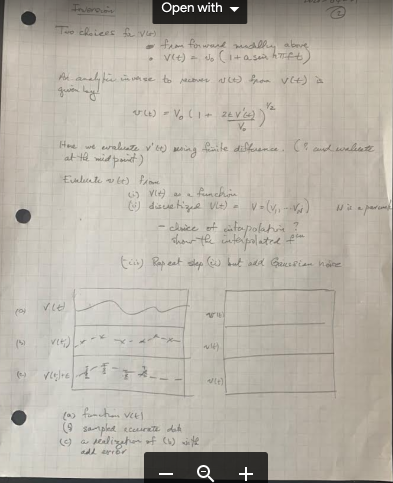 Open with
Inversion
②
Two choices for V(t)
from forward modelling above
V(t) = V₀ (1 + a sin nπft)
An analytic inverse to recover v(t) from V(t) is
given by
v(t) = V₀ (1 + 2t V'(t) / V₀)^1/2
Here we evaluate V'(t) using finite difference. (? and evaluate
at the midpoint)
Evaluate v(t) from
(i) V(t) as a function
(ii) discretized V(t) = V = (V₁ ... V_M) M is a
- choice of interpolation ?
show the interpolated f^n
(iii) Repeat step (ii) but add Gaussian noise
(a) V(t) v(t)
(b) V(tᵢ) v(t)
(c) V(tᵢ)+ε v(t)
(a) function V(t)
(b) sampled accurate data
(c) a realization of (b) with
add error